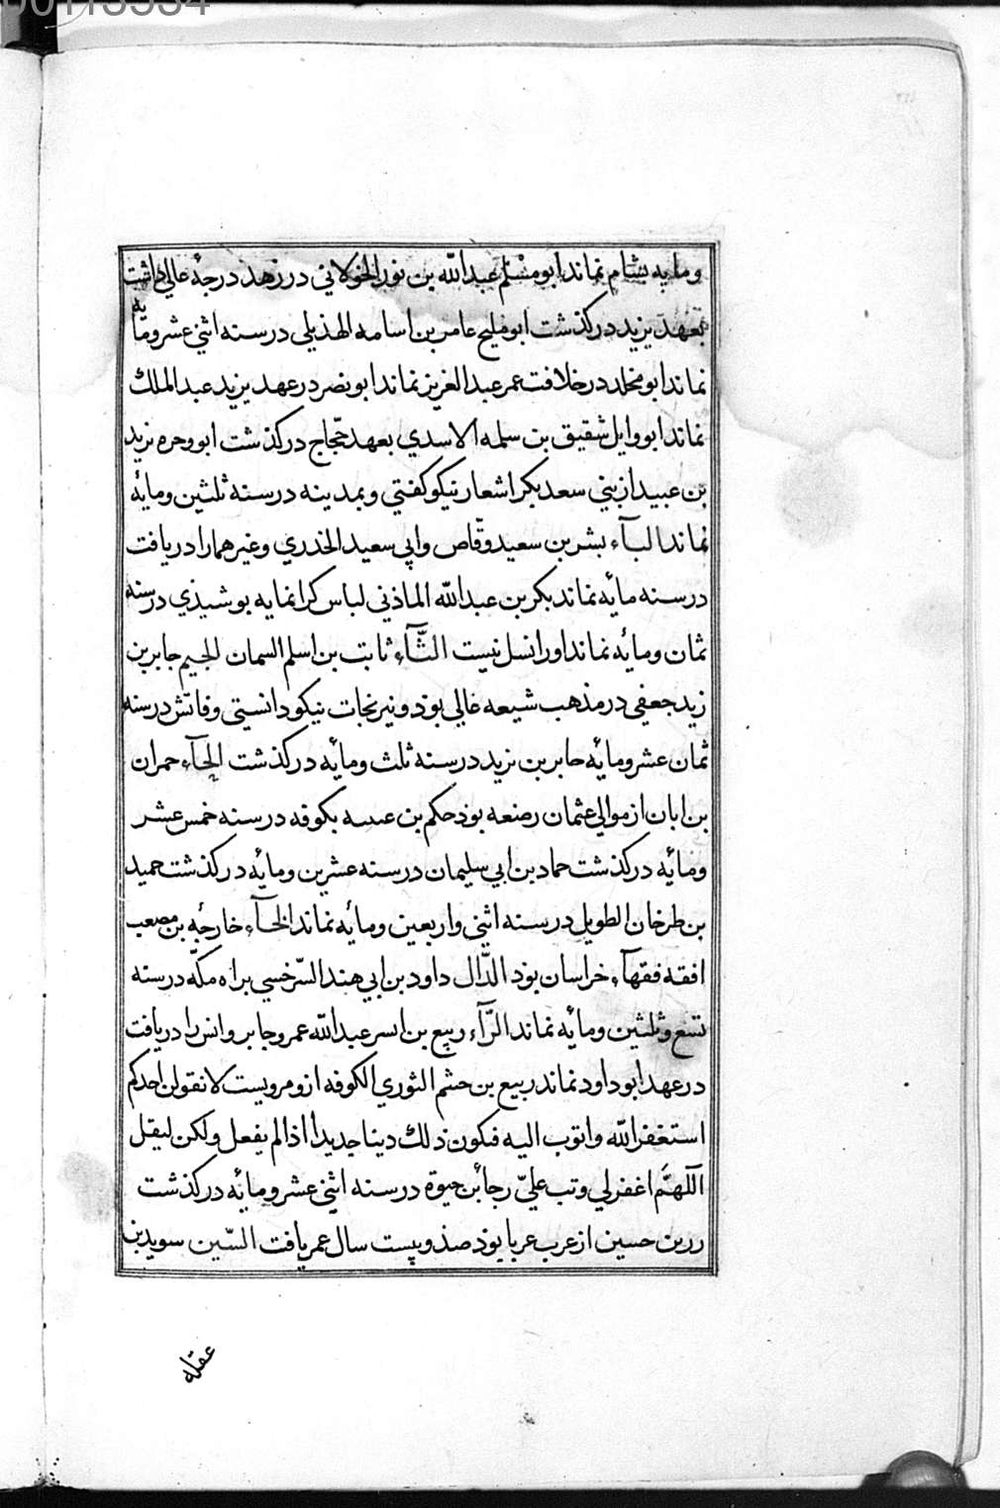 D0113534
ومایه بشام نماند ابومسلم عبدالله بن نور الخولانی در زهد درجهٔ عالی داشت
بعهد یزید درکذشت ابوملیح عامر بن اسامه الهذیلی در سنه اثنی عشر ومایه
نماند ابومخلد در خلافت عمر عبدالعزیز نماند ابونصر در عهد یزید عبدالملك
نماند ابووایل شقیق بن سلمه الاسدي بعهد حجّاج درکذشت ابووجره یزید
بن عبید از بني سعد بکر اشعار نیکو کفتي وبمدینه در سنه ثلثین ومایه
نماند البآء بشر بن سعید وقّاص وابي سعید الخدري وغیرهما را دریافت
در سنه مائه نماند بکر بن عبدالله الماذني لباس کرانمایه بوشیذي در سنه
ثمان ومائه نماند اورا نسل نیست الثّآء ثابت بن اسلم السمان الجیم جابر بن
زید جعفي در مذهب شیعه غالي بوذ ونیرنجات نیکو دانستي وفاتش در سنه
ثمان عشر ومائه جابر بن یزید در سنه ثلث ومائه درکذشت الحآء حمران
بن ابان از موالي عثمان رضعه بوذ حکم بن عیسه بکوفه در سنه خمس عشر
ومائه درکذشت حماد بن ابي سلیمان در سنه عشرین ومایه درکذشت حمید
بن طرخان الطویل در سنه اثنی واربعین ومائه نماند الخآء خارجه بن مصعب
افقه فقهآء خراسان بوذ الدّال داود بن ابي هند السّرخسي براه مکّه در سنه
تسع وثلثین ومائه نماند الرّآء ربیع بن انس عبدالله عمر وجابر وانس را دریافت
در عهد ابوداود نماند ربیع بن حشم الثوري الکوفه ازو مرویست لا نقولن احدکم
استغفر الله واتوب الیه فیکون ذلك دینا جدیدا اذا لم یفعل ولکن لیقل
اللّهمّ اغفر لي وتب عليّ رجأ بن حیوة در سنه اثنی عشر ومائه درکذشت
زر بن حسین از عرب عربا بوذ صذ وبیست سال عمر یافت السّین سوید بن
عقله